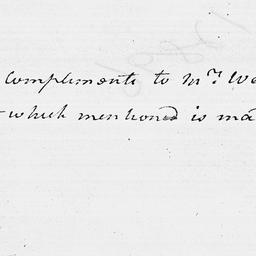 compliments to Mr.
which mentioned is